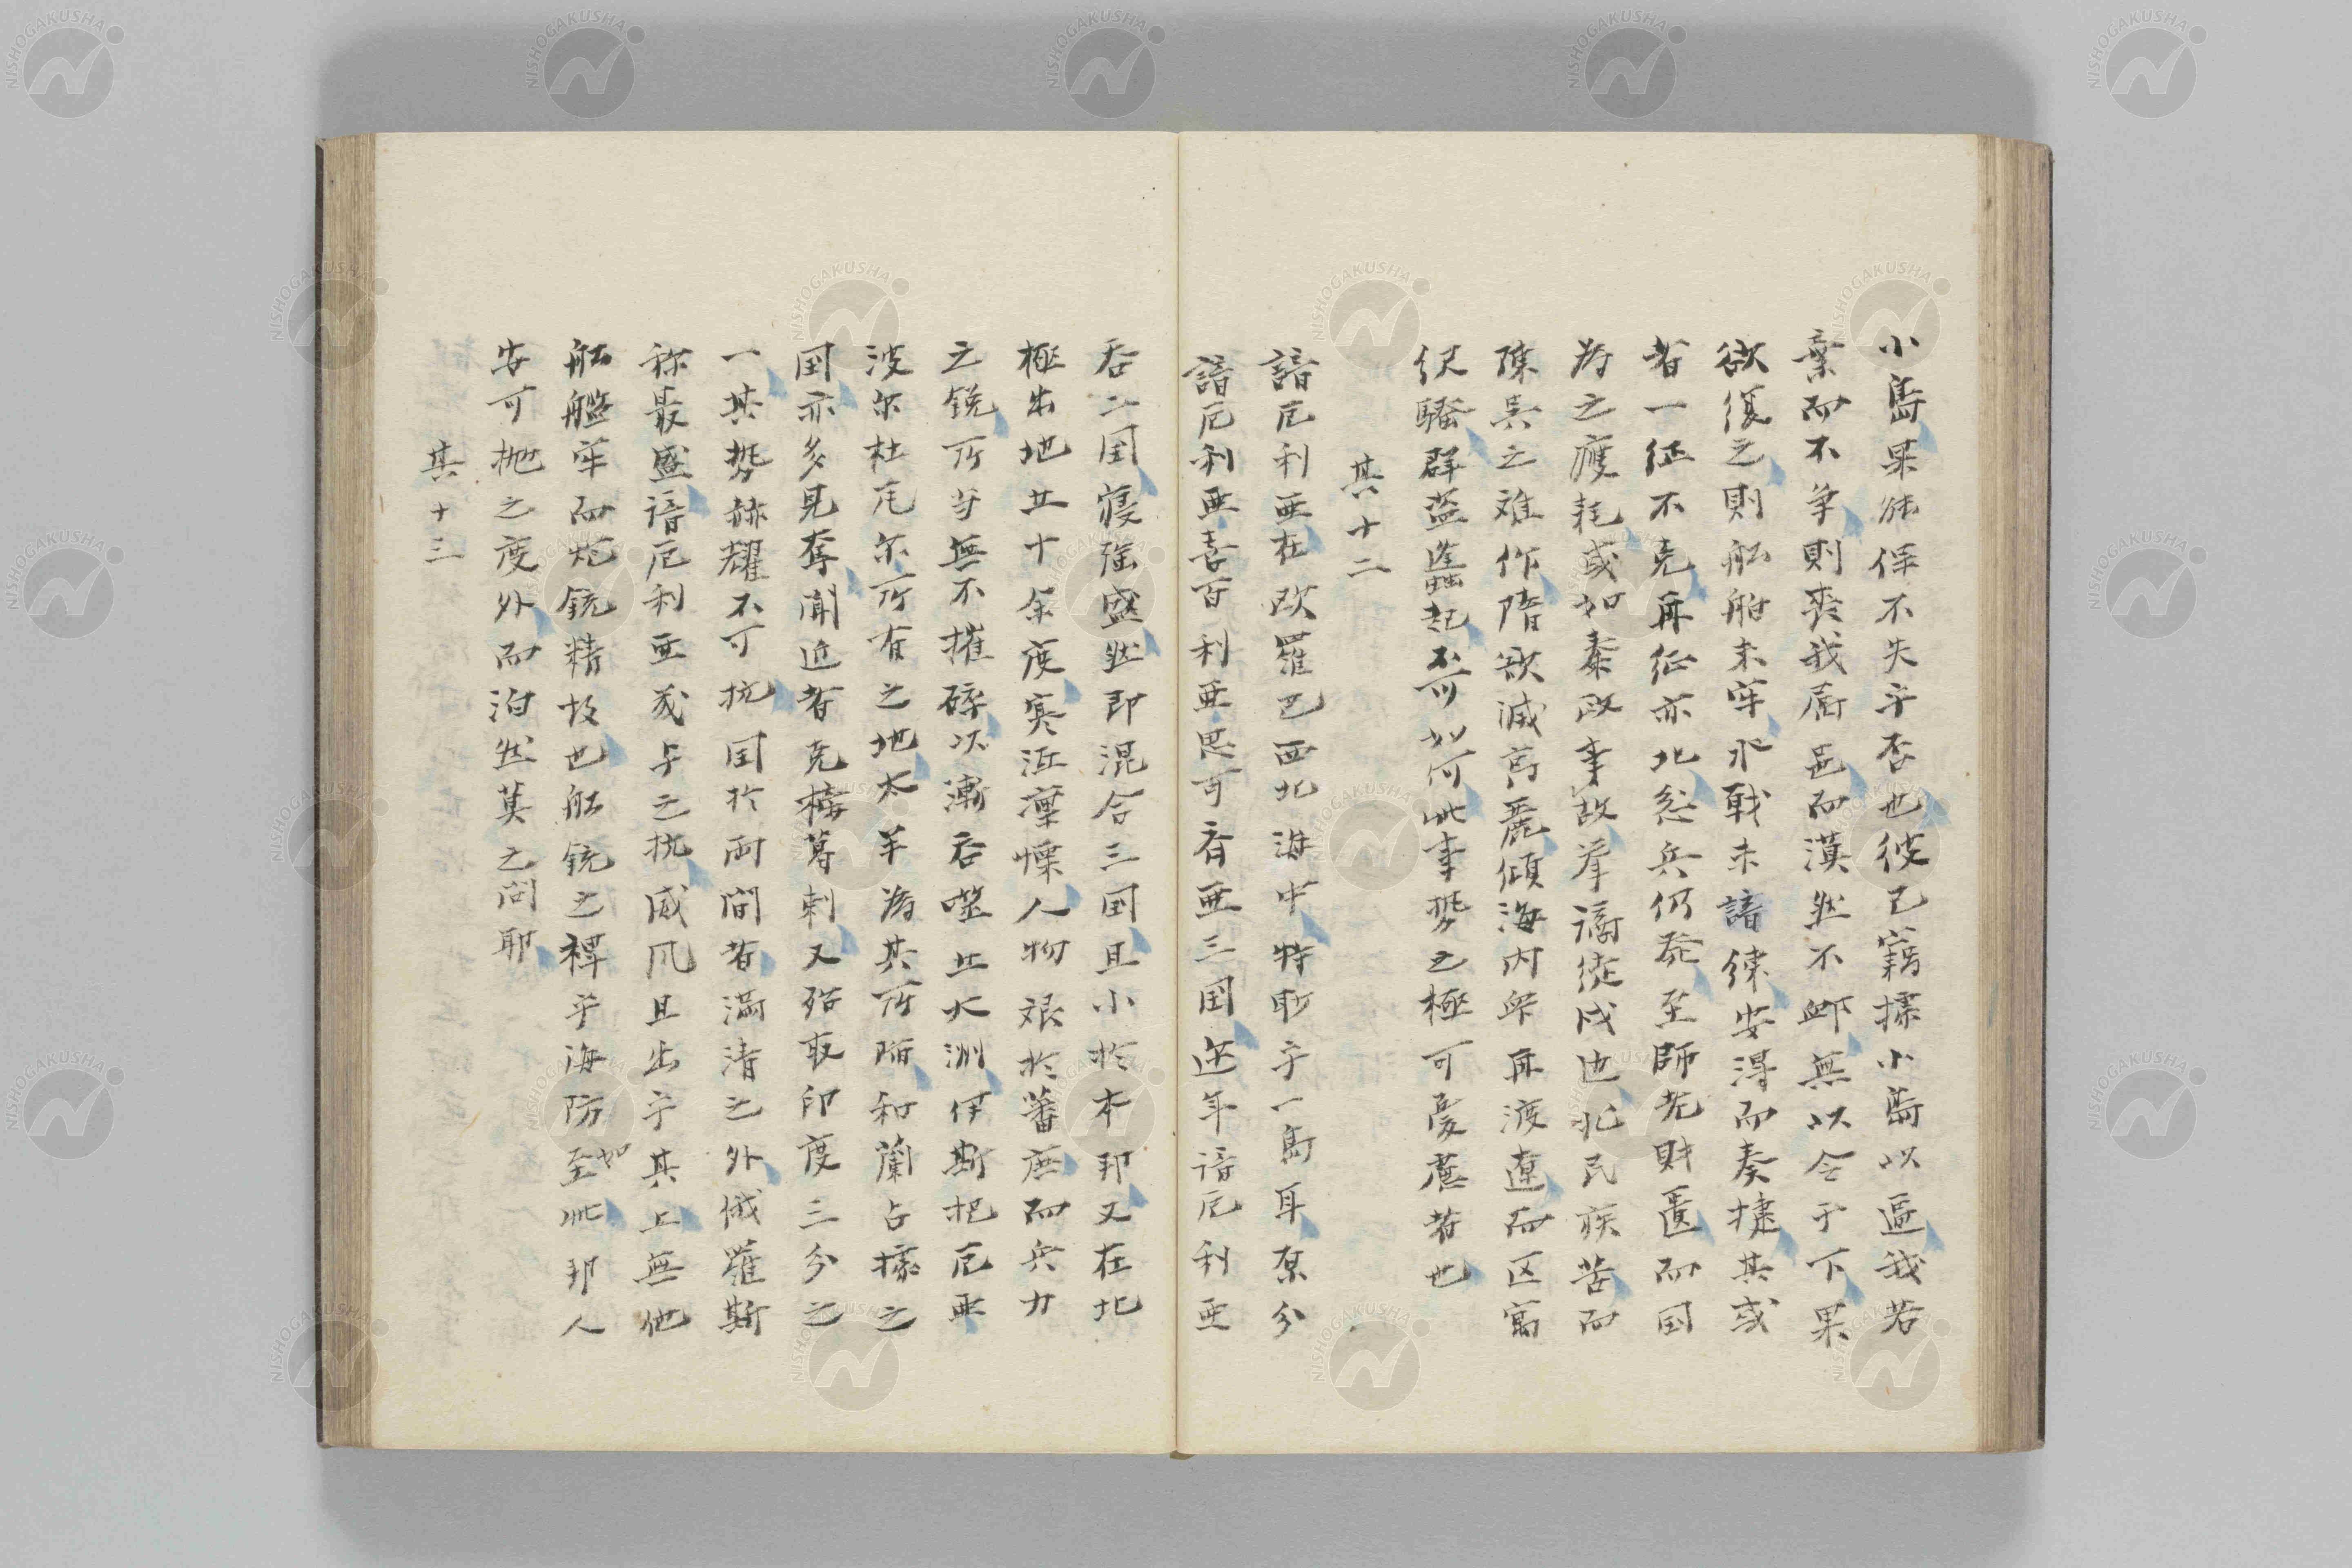 小島果能保不失乎否也彼已竊據小島以逼我若
棄而不争則喪我屬邑而漠然不邮無以令于下果
欲復之則舩舶未牢水戦未諳練安得而奏捷其或
者一征不克再征亦北忿兵仍発至師老財匱而国
為之疲耗或如秦政事故挙謫従戍也北民疾苦而
陳呉之難作隋欲滅高麗傾海内衆再渡遼而区寓
俶騒群盗逢蟲起不可如何此事勢之極可憂慮者也
其十二
諳厄利亜在欧羅巴西北海中特町乎一島耳原分
諳厄利亜喜百利亜思可斉亜三国近年諳厄利亜
呑二国寝強盛然即混合三国且小於本邦又在北
極出地五十余度寒沍凜慄人物艱於蕃庶而兵力
之鋭所当無不摧碎以漸呑噬五大洲伊斯把厄亜
波尔杜瓦尔所有之地太半為其所陥和蘭占據之
国亦多見奪聞近者克樓葛刺又殆取印度三分之
一其勢赫耀不可抗国於両間者満清之外俄羅斯
称最盛諳厄利亜或与之抗威風且出乎其上無他
舩艦牢而炮銃精故也舩銃之裨乎海防至如此邦人
安可抛之度外而泊然莫之問耶
其十三
NISHOGAKUSHA